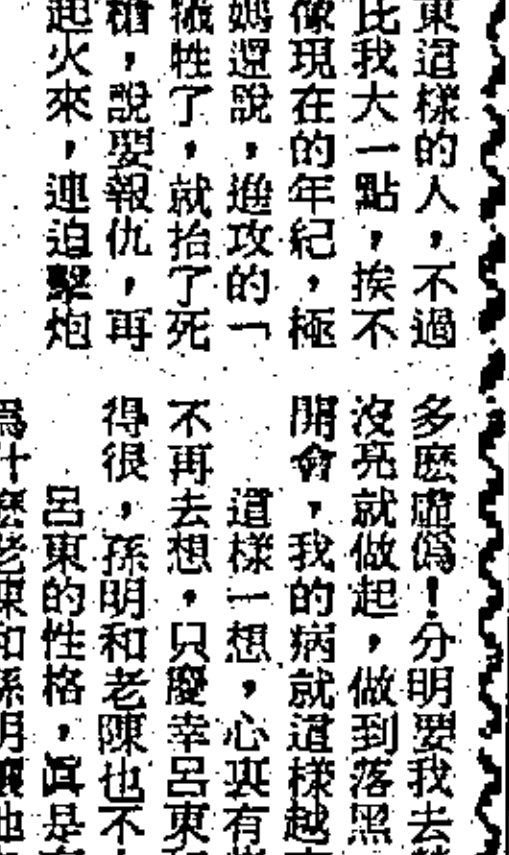 東這樣的人，不過
比我大一點，挨不
像現在的年紀，極
媽還說，進攻的「
犧牲了，就抬了死
槍，說要報仇，再
起火來，連迫擊炮
多麽虛僞！分明要我去
沒亮就做起，做到落黑
開會，我的病就這樣越
這樣一想，心裏有
不再去想，只慶幸呂東
得很，孫明和老陳也不
呂東的性格，眞是
爲什麽老陳和孫明 他